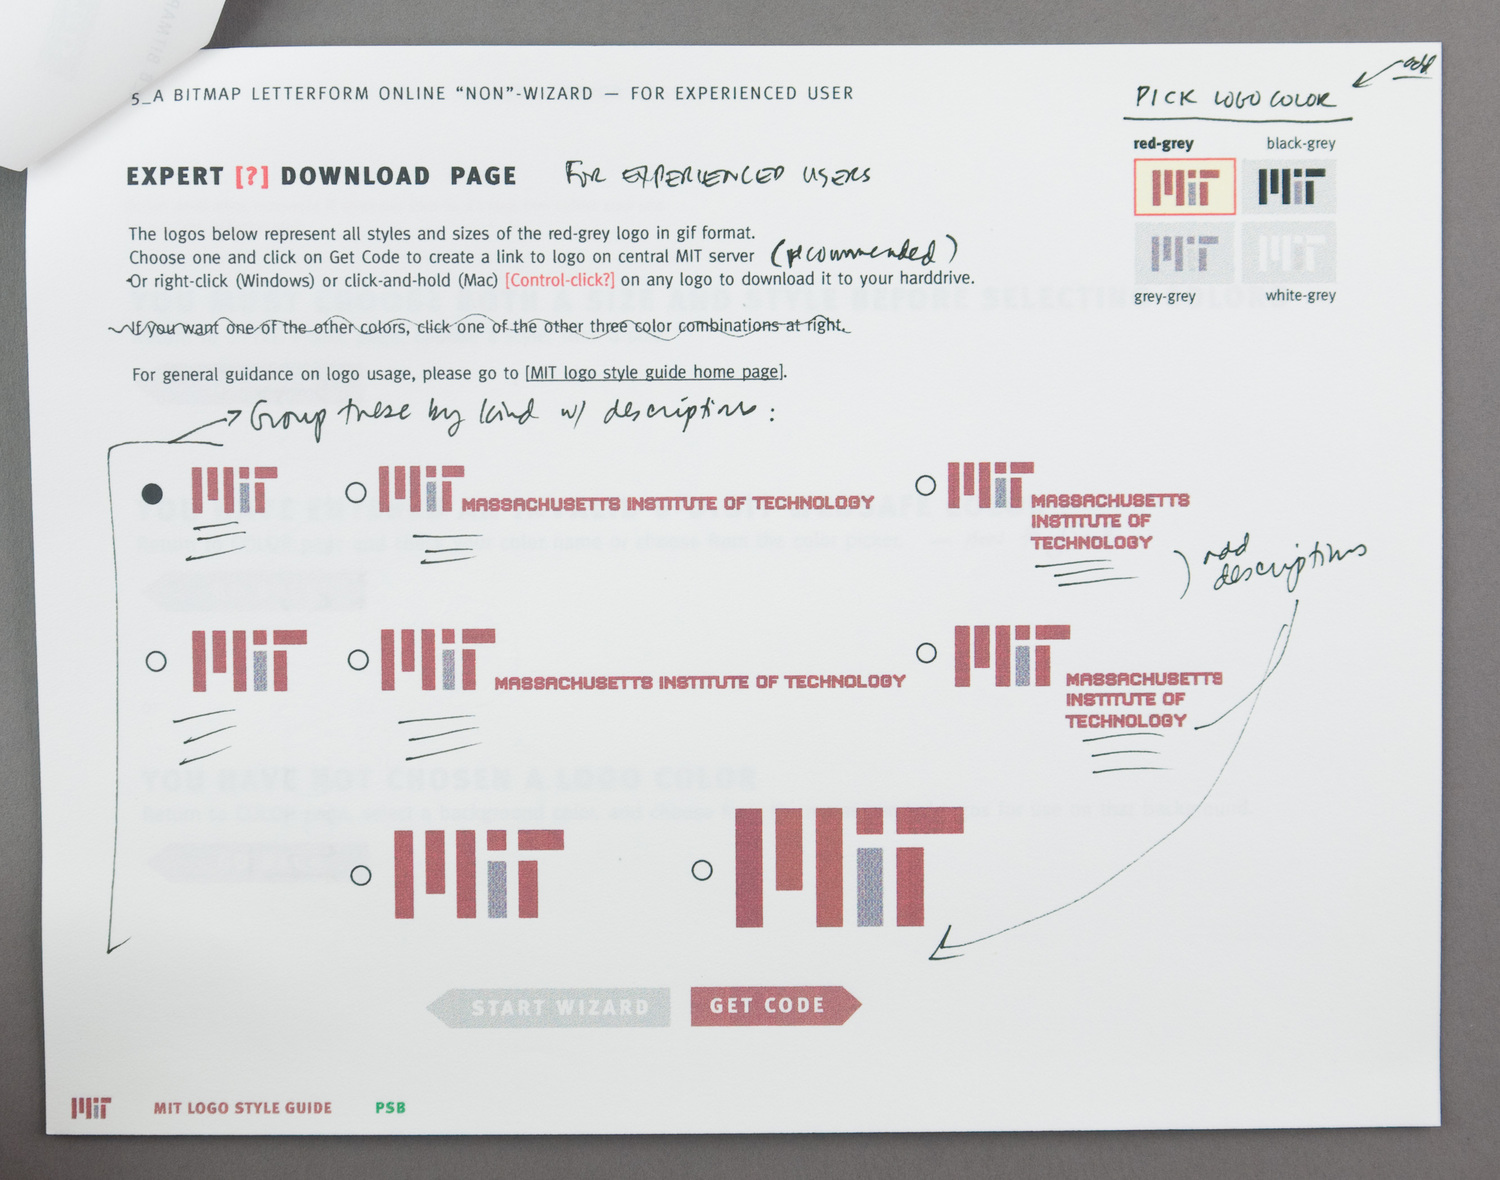 5_A BITMAP LETTERFORM ONLINE “NON”-WIZARD — FOR EXPERIENCED USER
add
PICK LOGO COLOR
red-grey black-grey
MIT MIT
MIT MIT
grey-grey white-grey
EXPERT [?] DOWNLOAD PAGE FOR EXPERIENCED USERS
The logos below represent all styles and sizes of the red-grey logo in gif format.
Choose one and click on Get Code to create a link to logo on central MIT server (recommended)
Or right-click (Windows) or click-and-hold (Mac) [Control-click?] on any logo to download it to your harddrive.
If you want one of the other colors, click one of the other three color combinations at right.
For general guidance on logo usage, please go to [MIT logo style guide home page].
Group these by kind w/ descriptions:
MIT MIT MASSACHUSETTS INSTITUTE OF TECHNOLOGY MIT MASSACHUSETTS
INSTITUTE OF
TECHNOLOGY
add
descriptions
MIT MIT MASSACHUSETTS INSTITUTE OF TECHNOLOGY MIT MASSACHUSETTS
INSTITUTE OF
TECHNOLOGY
MIT MIT
START WIZARD GET CODE
MIT MIT LOGO STYLE GUIDE PSB